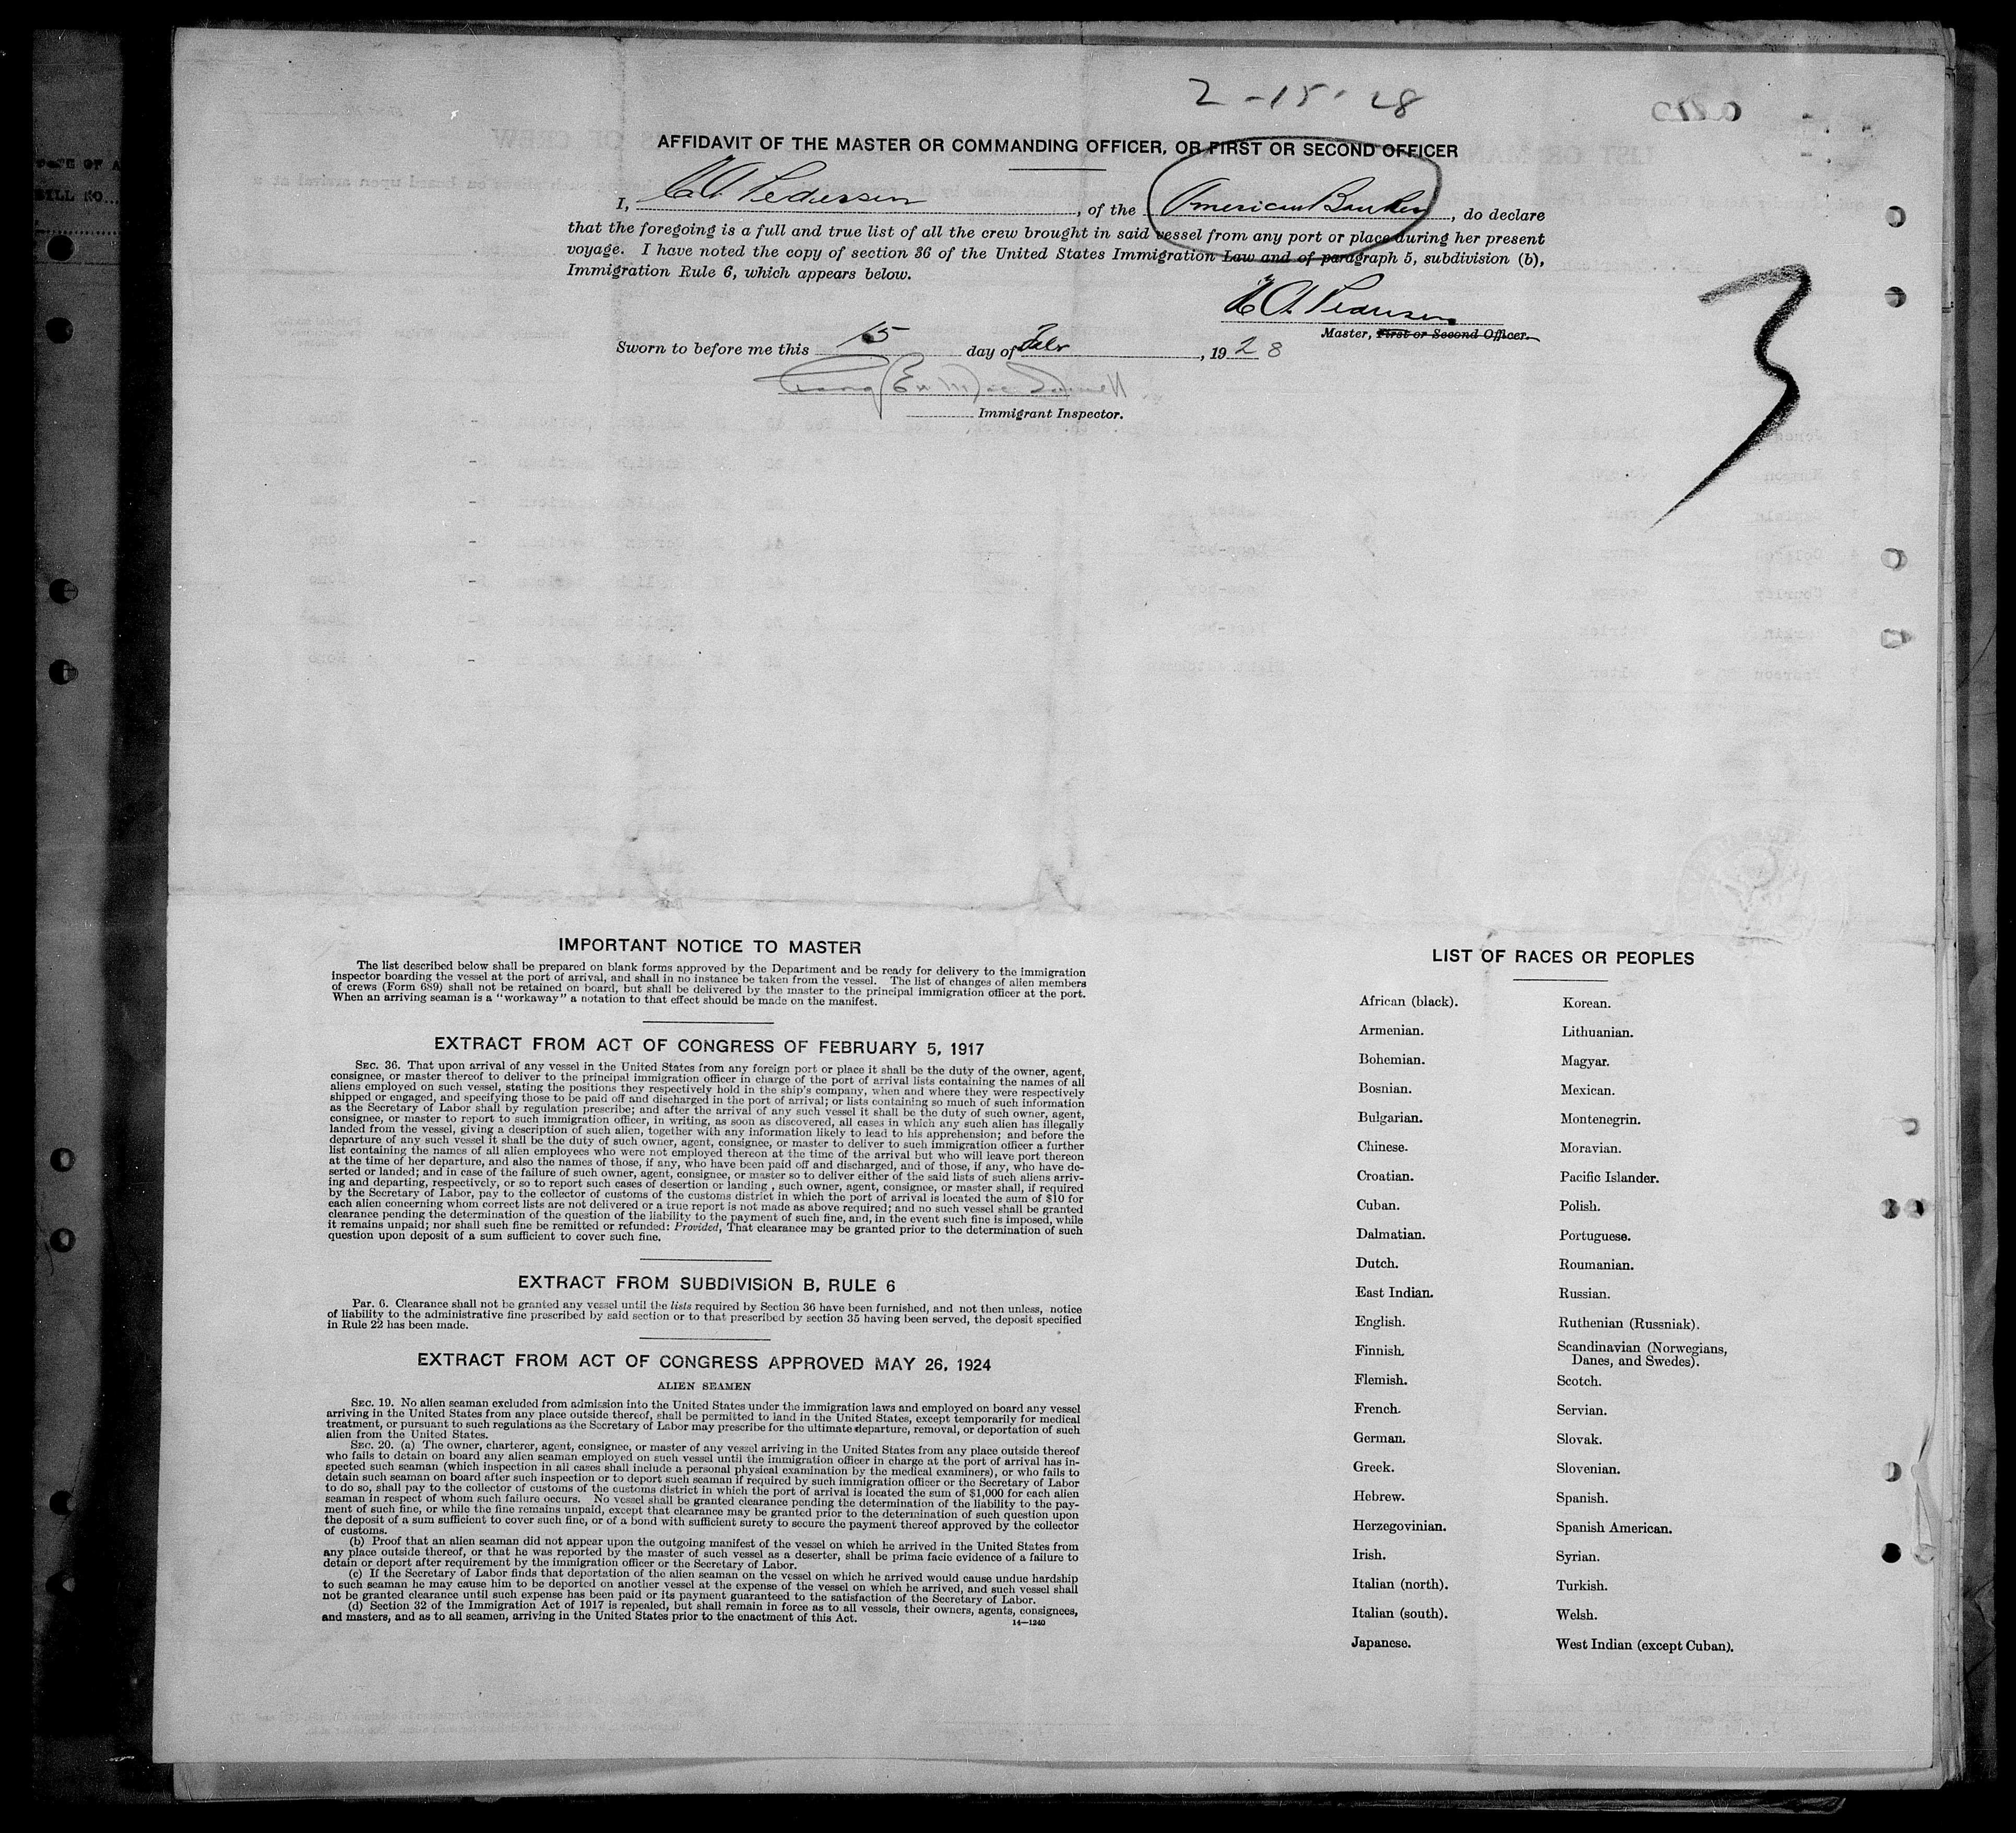 2-15-28
AFFIDAVIT OF THE MASTER OR COMMANDING OFFICER, OR FIRST OR SECOND OFFICER
I, Pedersen, of the American Banker, do declare
that the foregoing is a full and true list of all the crew brought in said vessel from any port or place during her present
voyage. I have noted the copy of section 36 of the United States Immigration Law and of paragraph 5, subdivision (b),
Immigration Rule 6, which appears below.
Pedersen
Master, First or Second Officer.
Sworn to before me this 15 day of Feb, 1928
Immigrant Inspector.
3
IMPORTANT NOTICE TO MASTER
The list described below shall be prepared on blank forms approved by the Department and be ready for delivery to the immigration
inspector boarding the vessel at the port of arrival, and shall in no instance be taken from the vessel. The list of changes of alien members
of crews (Form 689) shall not be retained on board, but shall be delivered by the master to the principal immigration officer at the port.
When an arriving seaman is a "workaway" a notation to that effect should be made on the manifest.
EXTRACT FROM ACT OF CONGRESS OF FEBRUARY 5, 1917
SEC. 36. That upon arrival of any vessel in the United States from any foreign port or place it shall be the duty of the owner, agent,
consignee, or master thereof to deliver to the principal immigration officer in charge of the port of arrival lists containing the names of all
aliens employed on such vessel, stating the positions they respectively hold in the ship's company, when and where they were respectively
shipped or engaged, and specifying those to be paid off and discharged in the port of arrival; or lists containing so much of such information
as the Secretary of Labor shall by regulation prescribe; and after the arrival of any such vessel it shall be the duty of such owner, agent,
consignee, or master to report to such immigration officer, in writing, as soon as discovered, all cases in which any such alien has illegally
landed from the vessel, giving a description of such alien, together with any information likely to lead to his apprehension; and before the
departure of any such vessel it shall be the duty of such owner, agent, consignee, or master to deliver to such immigration officer a further
list containing the names of all alien employees who were not employed thereon at the time of the arrival but who will leave port thereon
at the time of her departure, and also the names of those, if any, who have been paid off and discharged, and of those, if any, who have de-
serted or landed; and in case of the failure of such owner, agent, consignee, or master so to deliver either of the said lists of such aliens arriv-
ing and departing, respectively, or so to report such cases of desertion or landing, such owner, agent, consignee, or master shall, if required
by the Secretary of Labor, pay to the collector of customs of the customs district in which the port of arrival is located the sum of $10 for
each alien concerning whom correct lists are not delivered or a true report is not made as above required; and no such vessel shall be granted
clearance pending the determination of the question of the liability to the payment of such fine, and, in the event such fine is imposed, while
it remains unpaid; nor shall such fine be remitted or refunded: Provided, That clearance may be granted prior to the determination of such
question upon deposit of a sum sufficient to cover such fine.
EXTRACT FROM SUBDIVISION B, RULE 6
Par. 6. Clearance shall not be granted any vessel until the lists required by Section 36 have been furnished, and not then unless, notice
of liability to the administrative fine prescribed by said section or to that prescribed by section 35 having been served, the deposit specified
in Rule 22 has been made.
EXTRACT FROM ACT OF CONGRESS APPROVED MAY 26, 1924
ALIEN SEAMEN
SEC. 19. No alien seaman excluded from admission into the United States under the immigration laws and employed on board any vessel
arriving in the United States from any place outside thereof, shall be permitted to land in the United States, except temporarily for medical
treatment, or pursuant to such regulations as the Secretary of Labor may prescribe for the ultimate departure, removal, or deportation of such
alien from the United States.
SEC. 20. (a) The owner, charterer, agent, consignee, or master of any vessel arriving in the United States from any place outside thereof
who fails to detain on board any alien seaman employed on such vessel until the immigration officer in charge at the port of arrival has in-
spected such seaman (which inspection in all cases shall include a personal physical examination by the medical examiners), or who fails to
detain such seaman on board after such inspection or to deport such seaman if required by such immigration officer or the Secretary of Labor
to do so, shall pay to the collector of customs of the customs district in which the port of arrival is located the sum of $1,000 for each alien
seaman in respect of whom such failure occurs. No vessel shall be granted clearance pending the determination of the liability to the pay-
ment of such fine, or while the fine remains unpaid, except that clearance may be granted prior to the determination of such question upon
the deposit of a sum sufficient to cover such fine, or of a bond with sufficient surety to secure the payment thereof approved by the collector
of customs.
(b) Proof that an alien seaman did not appear upon the outgoing manifest of the vessel on which he arrived in the United States from
any place outside thereof, or that he was reported by the master of such vessel as a deserter, shall be prima facie evidence of a failure to
detain or deport after requirement by the immigration officer or the Secretary of Labor.
(c) If the Secretary of Labor finds that deportation of the alien seaman on the vessel on which he arrived would cause undue hardship
to such seaman he may cause him to be deported on another vessel at the expense of the vessel on which he arrived, and such vessel shall
not be granted clearance until such expense has been paid or its payment guaranteed to the satisfaction of the Secretary of Labor.
(d) Section 32 of the Immigration Act of 1917 is repealed, but shall remain in force as to all vessels, their owners, agents, consignees,
and masters, and as to all seamen, arriving in the United States prior to the enactment of this Act.
14—1240
LIST OF RACES OR PEOPLES
African (black).
Armenian.
Bohemian.
Bosnian.
Bulgarian.
Chinese.
Croatian.
Cuban.
Dalmatian.
Dutch.
East Indian.
English.
Finnish.
Flemish.
French.
German.
Greek.
Hebrew.
Herzegovinian.
Irish.
Italian (north).
Italian (south).
Japanese.
Korean.
Lithuanian.
Magyar.
Mexican.
Montenegrin.
Moravian.
Pacific Islander.
Polish.
Portuguese.
Roumanian.
Russian.
Ruthenian (Russniak).
Scandinavian (Norwegians,
Danes, and Swedes).
Scotch.
Servian.
Slovak.
Slovenian.
Spanish.
Spanish American.
Syrian.
Turkish.
Welsh.
West Indian (except Cuban).